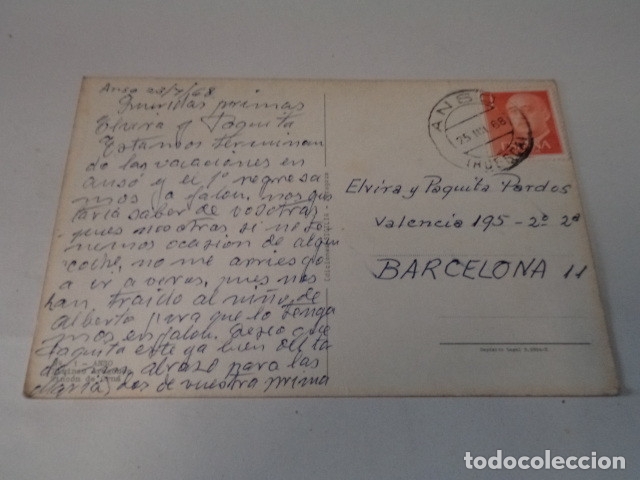 Anso 22/7/68
Queridas primas
Elvira y Paquita
Estamos terminan
do las vacaciones en
ansó y el 1º regresa
mos a jalon. nos gus
taria saber de vosotras
pues nosotras, si no te
nemos ocasion de algun
coche, no me arriesgo
a ir a veros, pues nos
han traido al niño, de
alberto para que lo tenga
mos en jalon. Deseo que
Paquita este ya bien del to
do abrazo para las
dos de vuestra prima
Maria
ANSO
ANSO
(HUESCA)
Elvira y Paquita Pardos
Valencia 195 - 2º 2ª
BARCELONA 11
todocoleccion.net